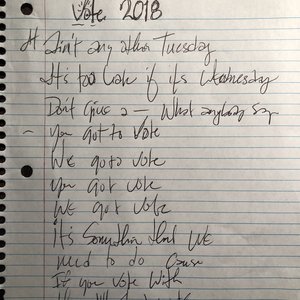 Vote 2018
It Ain't any other Tuesday
It's too late if it's Wednesday
Don't Give a — What anybody say
- You got to Vote
We got to Vote
you Got vote
WE GOT VOTE
It's Somethin that WE
need to do cause
If you vote with